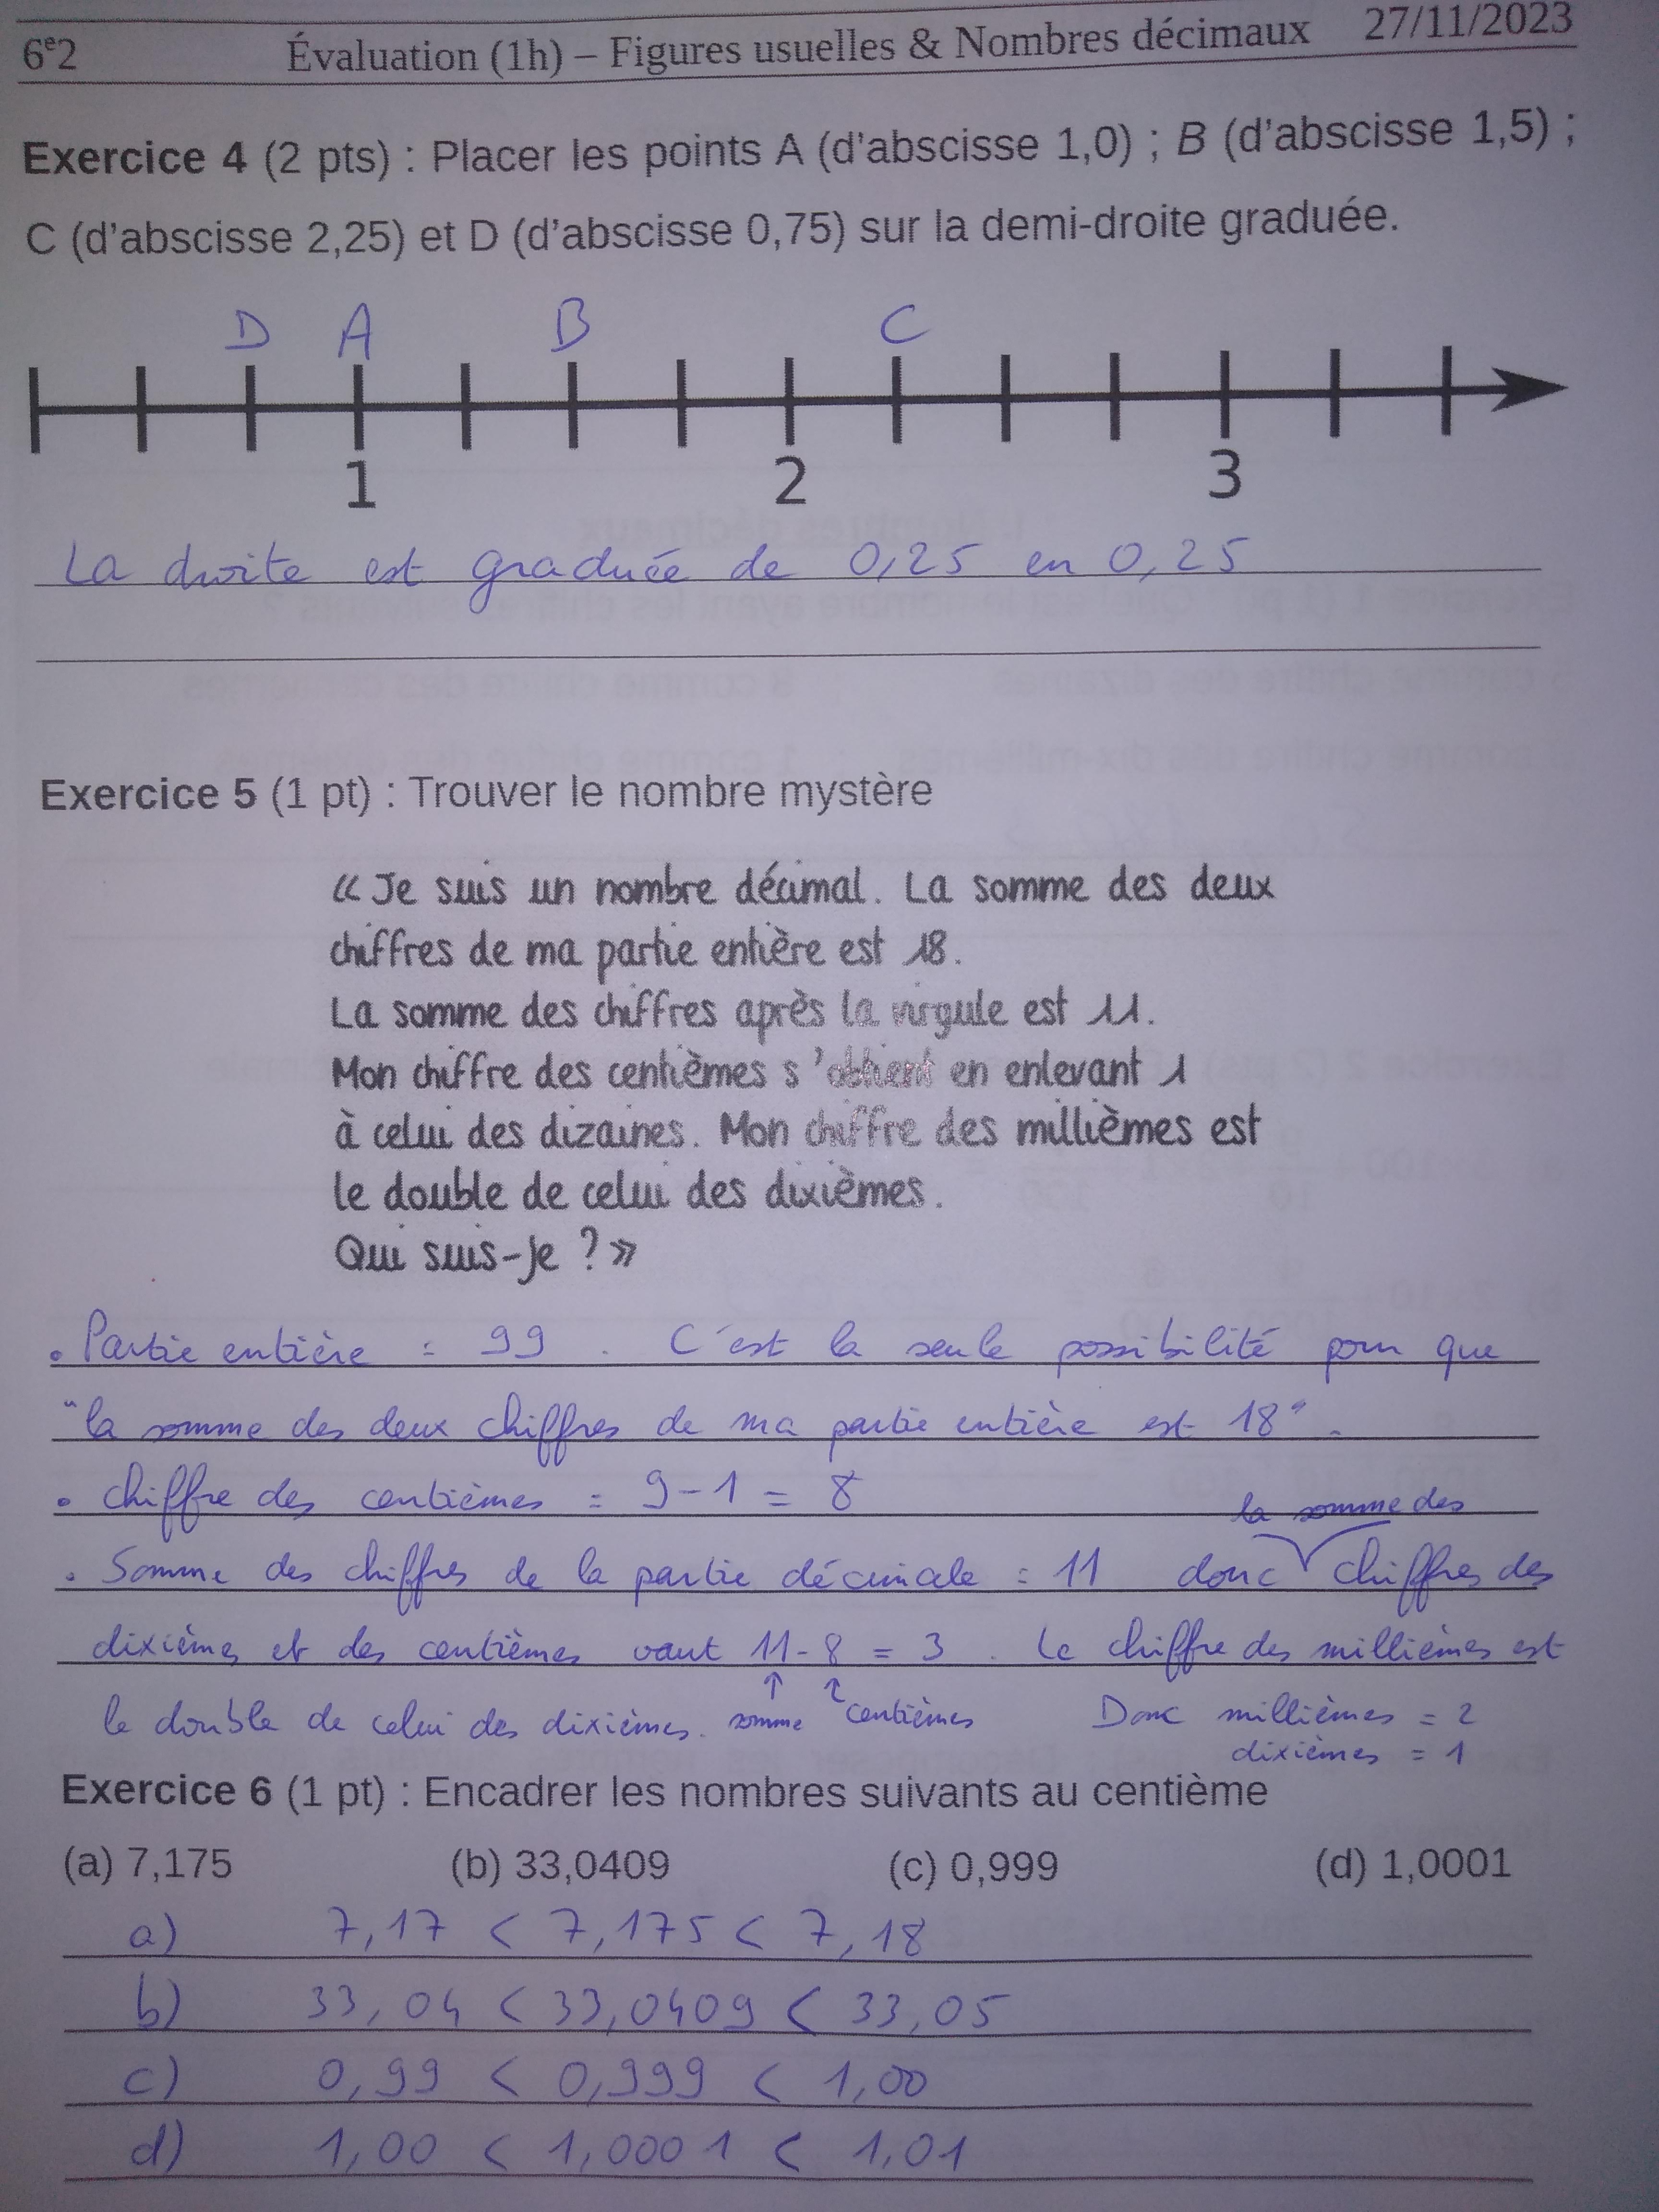 6e2 Évaluation (1h) – Figures usuelles & Nombres décimaux 27/11/2023
Exercice 4 (2 pts) : Placer les points A (d'abscisse 1,0) ; B (d'abscisse 1,5) ;
C (d'abscisse 2,25) et D (d'abscisse 0,75) sur la demi-droite graduée.
D A B C
1 2 3
La droite est graduée de 0,25 en 0,25
Exercice 5 (1 pt) : Trouver le nombre mystère
« Je suis un nombre décimal. La somme des deux
chiffres de ma partie entière est 18.
La somme des chiffres après la virgule est 11.
Mon chiffre des centièmes s'obtient en enlevant 1
à celui des dizaines. Mon chiffre des millièmes est
le double de celui des dixièmes.
Qui suis-je ? »
• Partie entière = 99. C'est la seule possibilité pour que
"la somme des deux chiffres de ma partie entière est 18".
• chiffre des centièmes = 9-1 = 8
la somme des
• Somme des chiffres de la partie décimale = 11 donc chiffres des
dixièmes et des centièmes vaut 11-8 = 3. Le chiffre des millièmes est
le double de celui des dixièmes. somme centièmes Donc millièmes = 2
dixièmes = 1
Exercice 6 (1 pt) : Encadrer les nombres suivants au centième
(a) 7,175 (b) 33,0409 (c) 0,999 (d) 1,0001
a) 7,17 < 7,175 < 7,18
b) 33,04 < 33,0409 < 33,05
c) 0,99 < 0,999 < 1,00
d) 1,00 < 1,0001 < 1,01